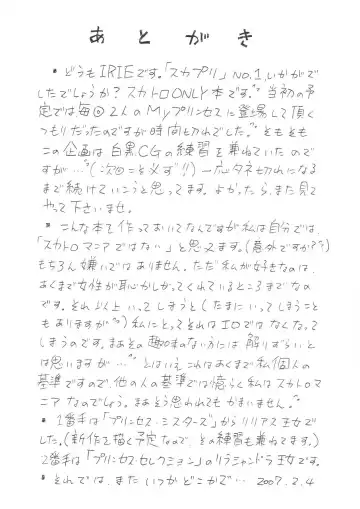 あとがき
・どうもIRIEです。「スカプリ」NO.1,いかがで
したでしょうか？スカトロONLY本です。当初の予
定では毎回2人のMyプリンセスに登場して頂く
つもりだったのですが時間切れでした。ともとも
この企画は白黒CGの練習を兼ねていたので
すが…(次回こそ必ず!!)一応ネタ切れになる
まで続けていこうと思ってます。よかったら、また見て
やって下さいませ。
・こんな本で作っておいてなんですが私は自分では、
「スカトロマニアではない」と思えます。(意外ですか??)
もちろん嫌いではありません。ただ私が好きなのは、
あくまで女性が恥しがってくれているところまでなの
です。それ以上いってしまうと(たまにいってしまうこと
もありますが)私にとってそれはエロではなくなって
しまうのです。まあその趣味のない方には解りずらいと
は思いますが…とはいえこれはあくまで私個人の
基準ですので、他の人の基準では恐らく私はスカトロマ
ニアなのでしょう。まあそう思われてもかまいません。
・1番手は「プリンセス・ミスターズ」からリリアス王女で
した。(新作を描く予定なので、その練習も兼ねてます。)
2番手は「プリンセス・セレクション」のリラシャンドラ王女です。
・それでは、またいつかどこかで… 2007.2.4